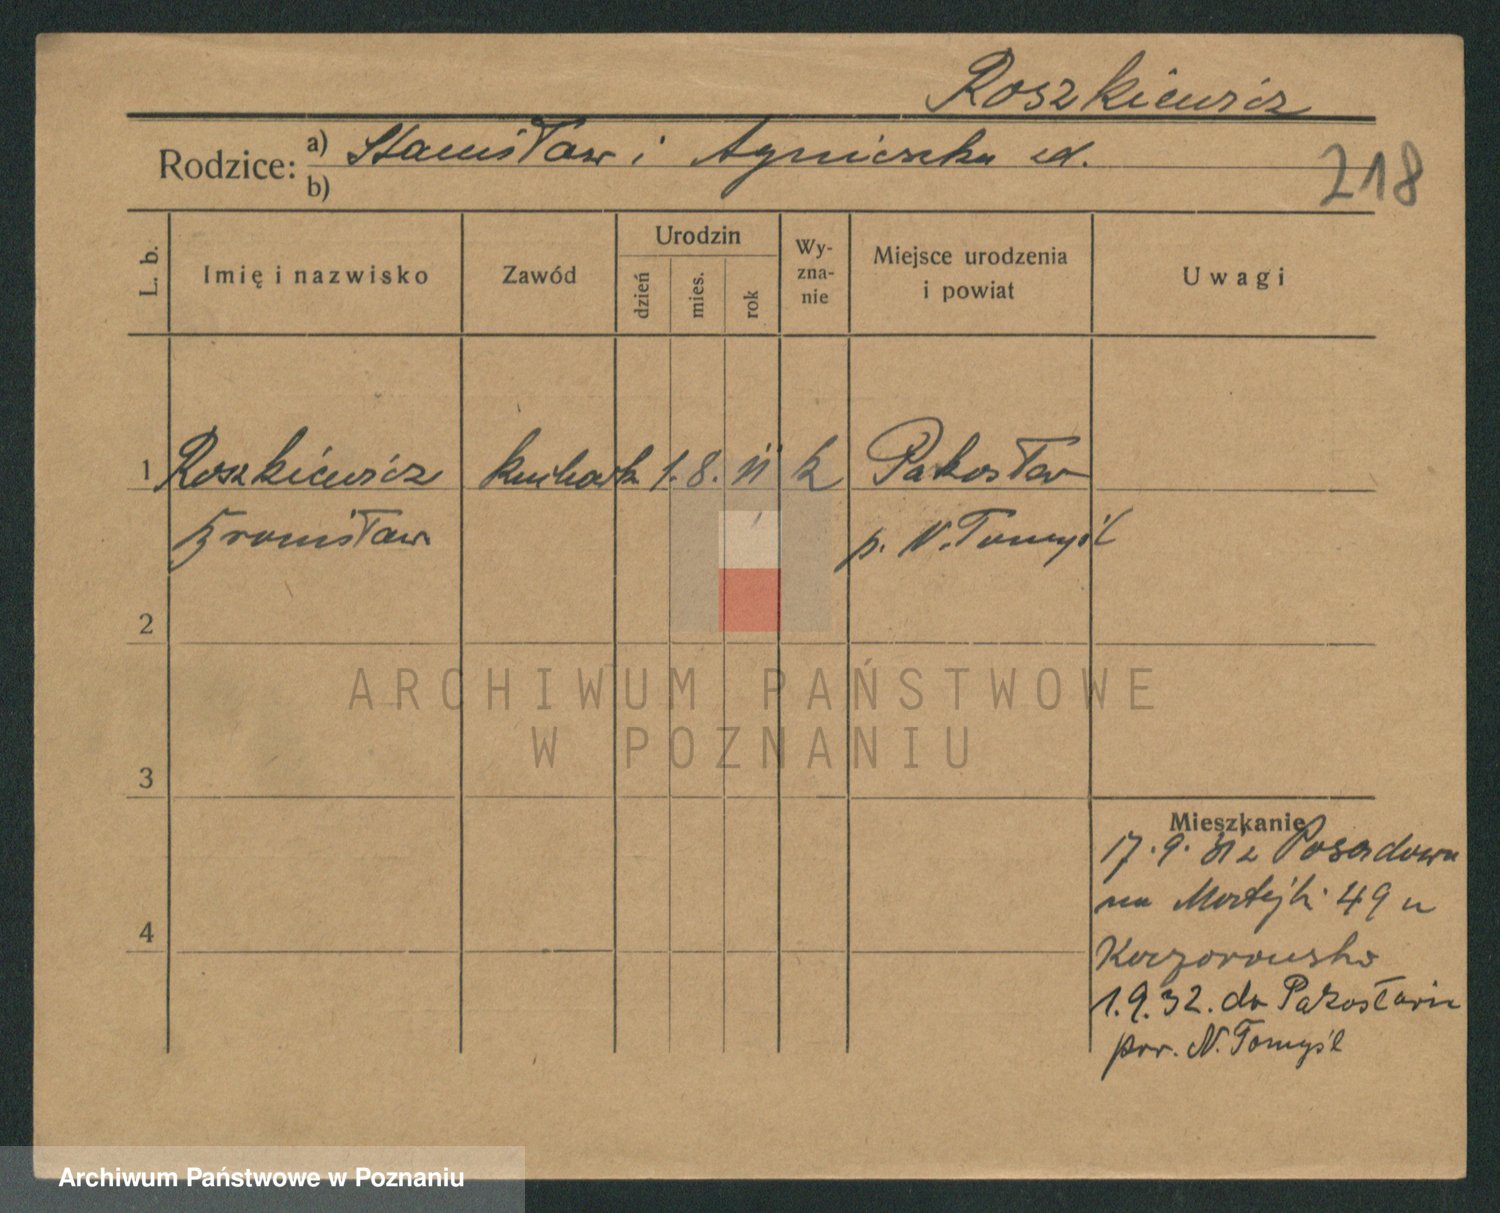 Roszkiewicz
Rodzice: a) Stanisław i Agnieszka
b)
218
L. b.
Imię i nazwisko
Zawód
Urodzin
dzień
mies.
rok
Wy-
zna-
nie
Miejsce urodzenia
i powiat
Uwagi
1 Roszkiewicz kuchark 1. 8. 11 k Pakosław
Bronisław p. N. Tomyśl
2
ARCHIWUM PAŃSTWOWE
W POZNANIU
3
Mieszkanie
17. 9. 31 z Posadowa
na 49 u
4
1. 9. 32. do Pakosławia
pow. N. Tomyśl
Archiwum Państwowe w Poznaniu